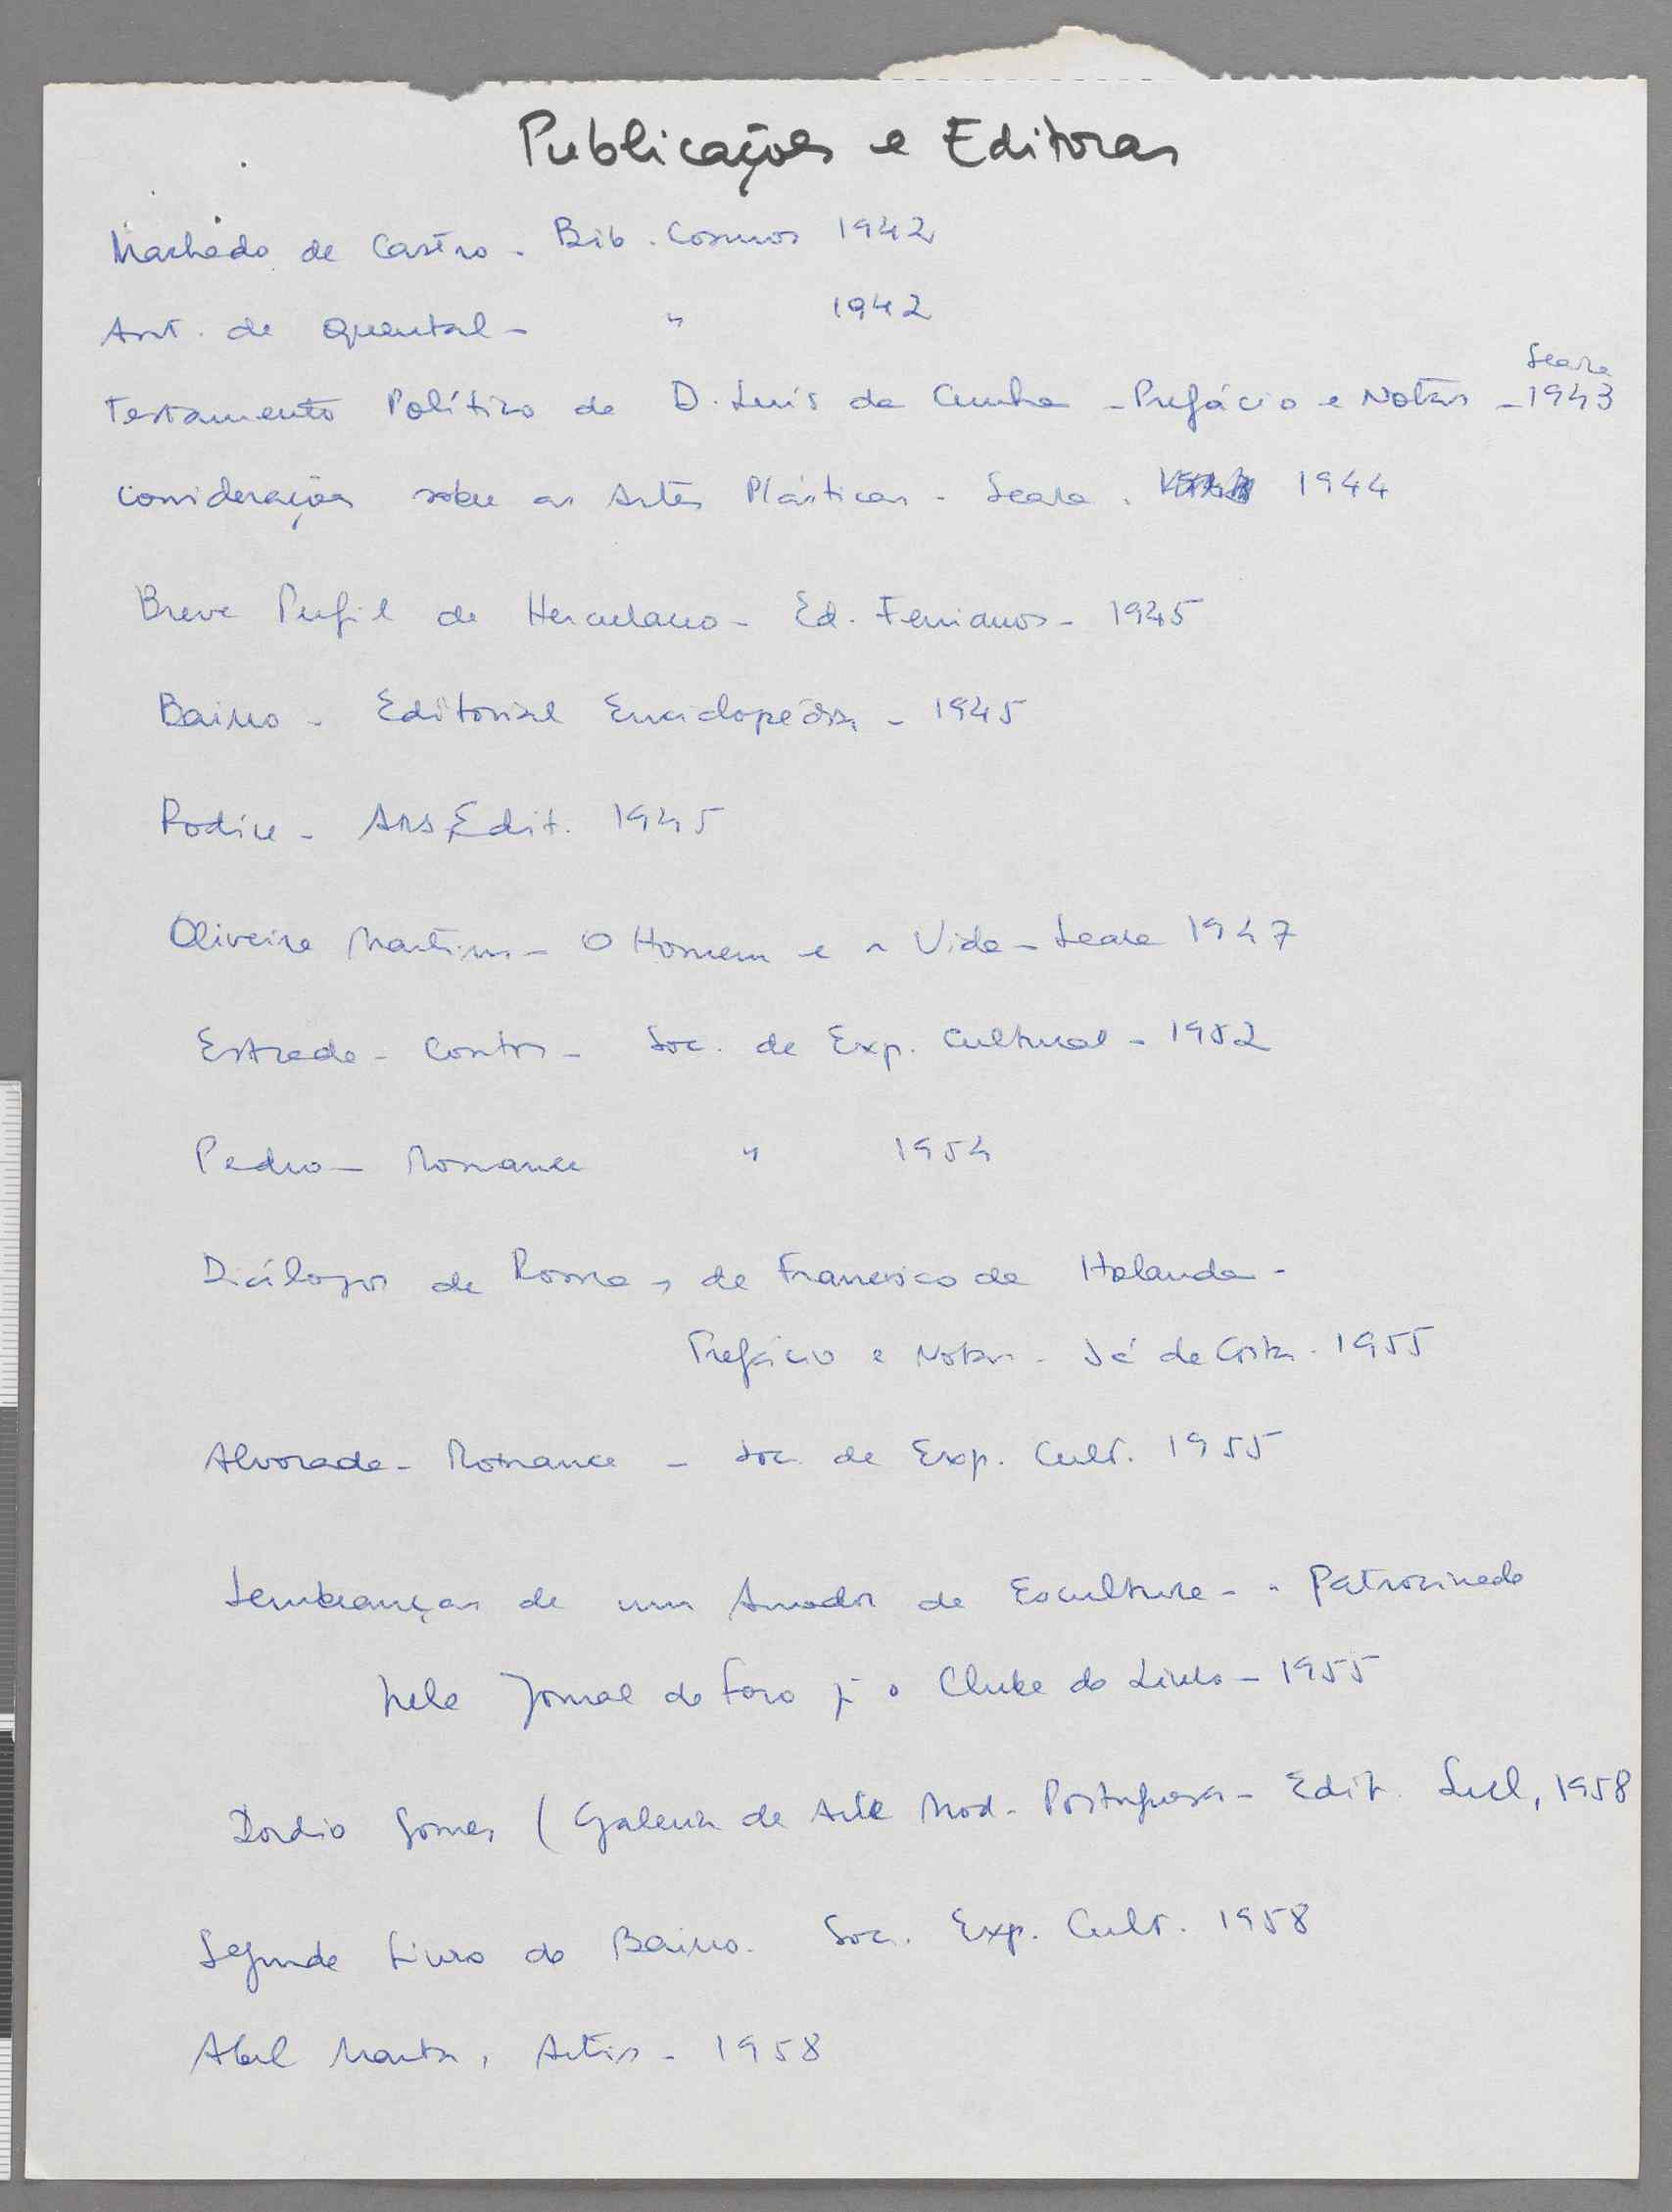 Publicações e Editoras
Machado de Castro - Bib. Cosmos 1942
Ant. de Quental - " 1942
Seara
Testamento Político de D. Luís da Cunha - Prefácio e Notas - 1943
Considerações sobre as Artes Plásticas - Seara. 1944
Breve Perfil de Herculano - Ed. Fenianos - 1945
Bairro - Editorial Enciclopédia - 1945
Rodin - Ars, Edit. 1945
Oliveira Martins - O Homem e a Vida - Seara 1947
Estrada - Contos - Soc. de Exp. Cultural - 1952
Pedro - Romance " 1954
Diálogos de Roma, de Francisco de Holanda -
Prefácio e Notas - Sá da Costa. 1955
Alvorada - Romance - Soc. de Exp. Cult. 1955
Lembranças de um Amador de Escultura - Patrocinado
pelo Jornal do Foro p. o Clube do Livro - 1955
Dordio Gomes (Galeria de Arte Mod. Portuguesa - Edit. Sul, 1958
Segundo Livro do Bairro. Soc. Exp. Cult. 1958
Abel Manta, Artis - 1958